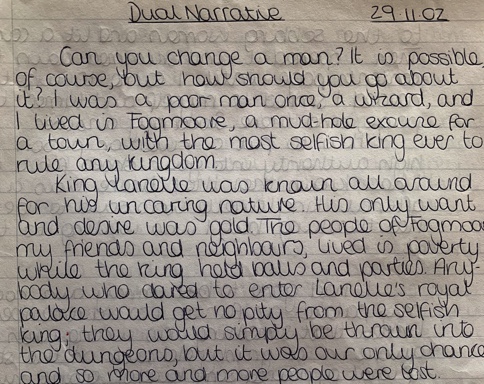 Dual Narratie 29.11.02
Can you change a man? It is possible,
of course, but how should you go about
it? I was a poor man once, a wizard, and
I lived in Fogmoore, a mud-hole excuse for
a town, with the most selfish king ever to
rule any kingdom.
King Lanelle was known all around
for his uncaring nature. His only want
and desire was gold. The people of Fogmoo
my friends and neighbours, lived in poverty
while the king held balls and parties. Any-
body who dared to enter Lanelle's royal
palace would get no pity from the selfish
king; they would simply be thrown into
the dungeons, but it was our only chance
and so more and more people were lost.